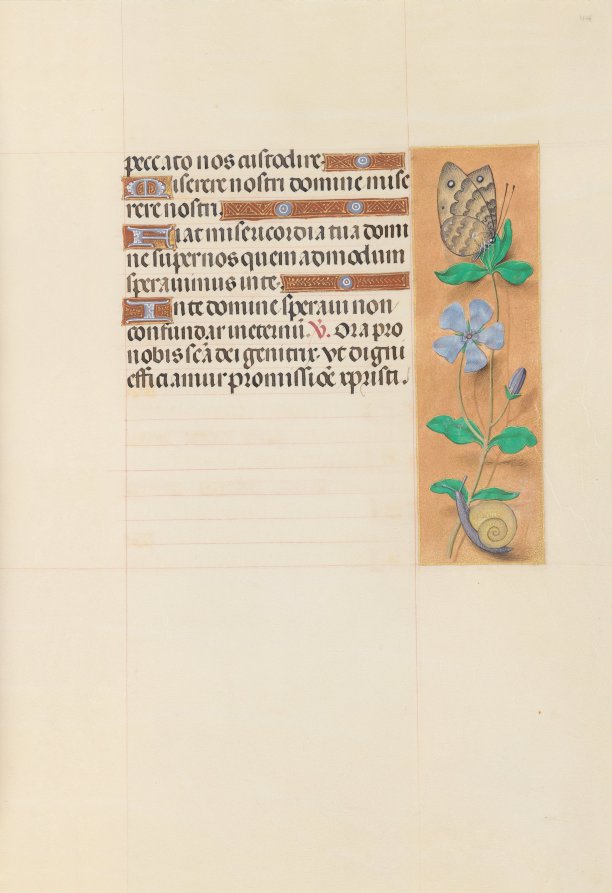 peccato nos custodire.
Miserere nostri domine mise
rere nostri.
Fiat misericordia tua domi
ne super nos quem admodum
sperauimus in te.
In te domine speraui non
confundar in eternū. V̄. Ora pro
nobis sc̄a dei genitrix. Vt digni
efficiamur promissiōe xpristi.